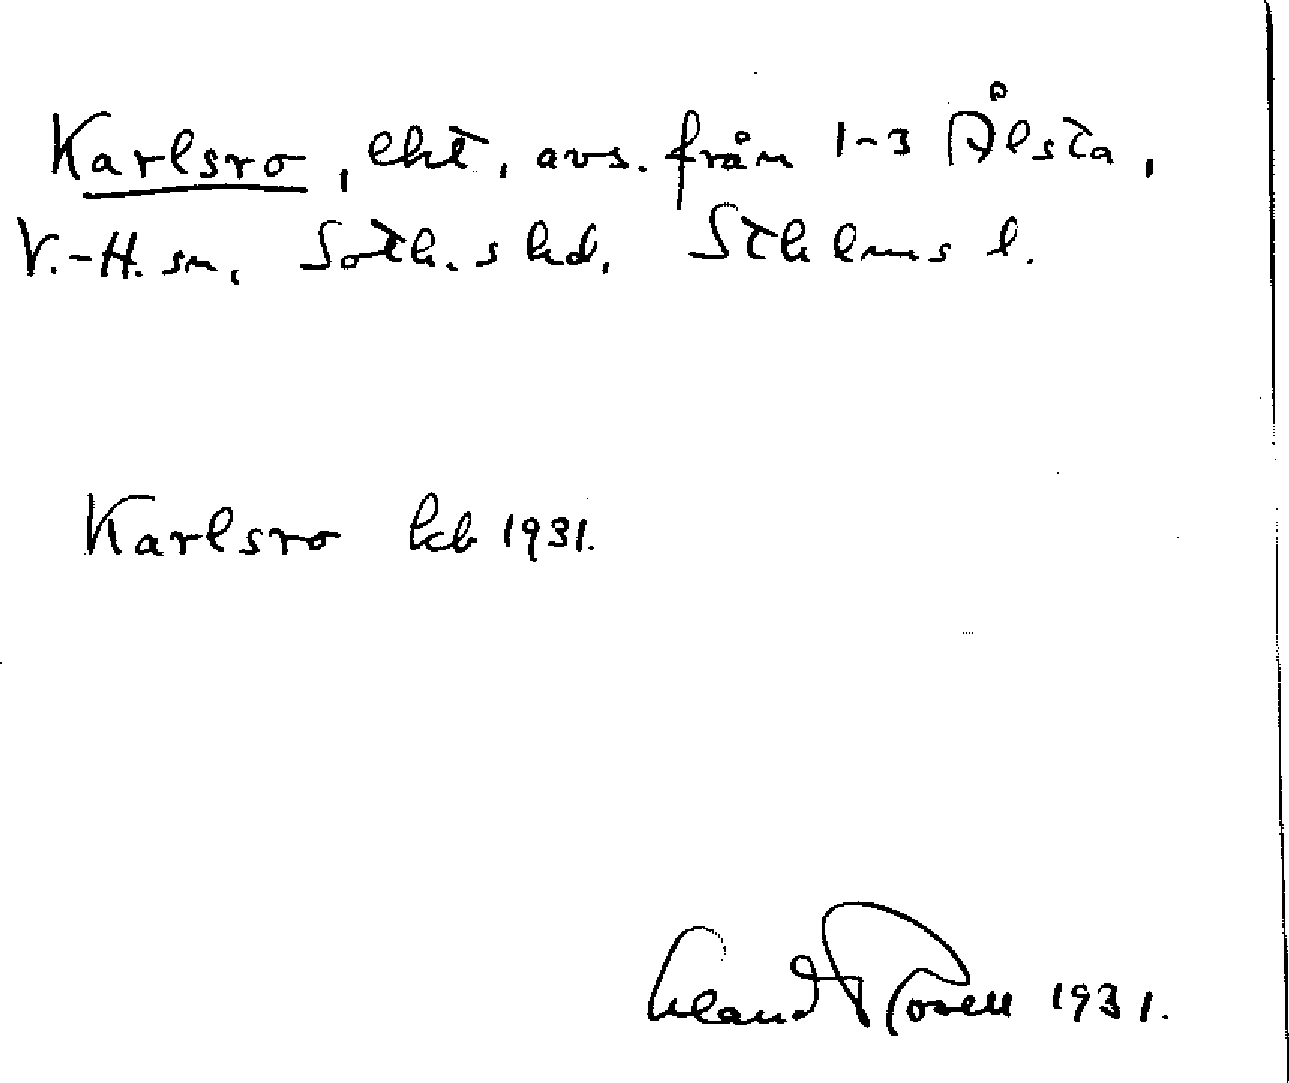 Karlsro, lht, avs. från 1-3 Ålsta,
V.-H. sn, Soth.s hd, Sthlms l.
Karlsro kb 1931.
Erland Rosell 1931.